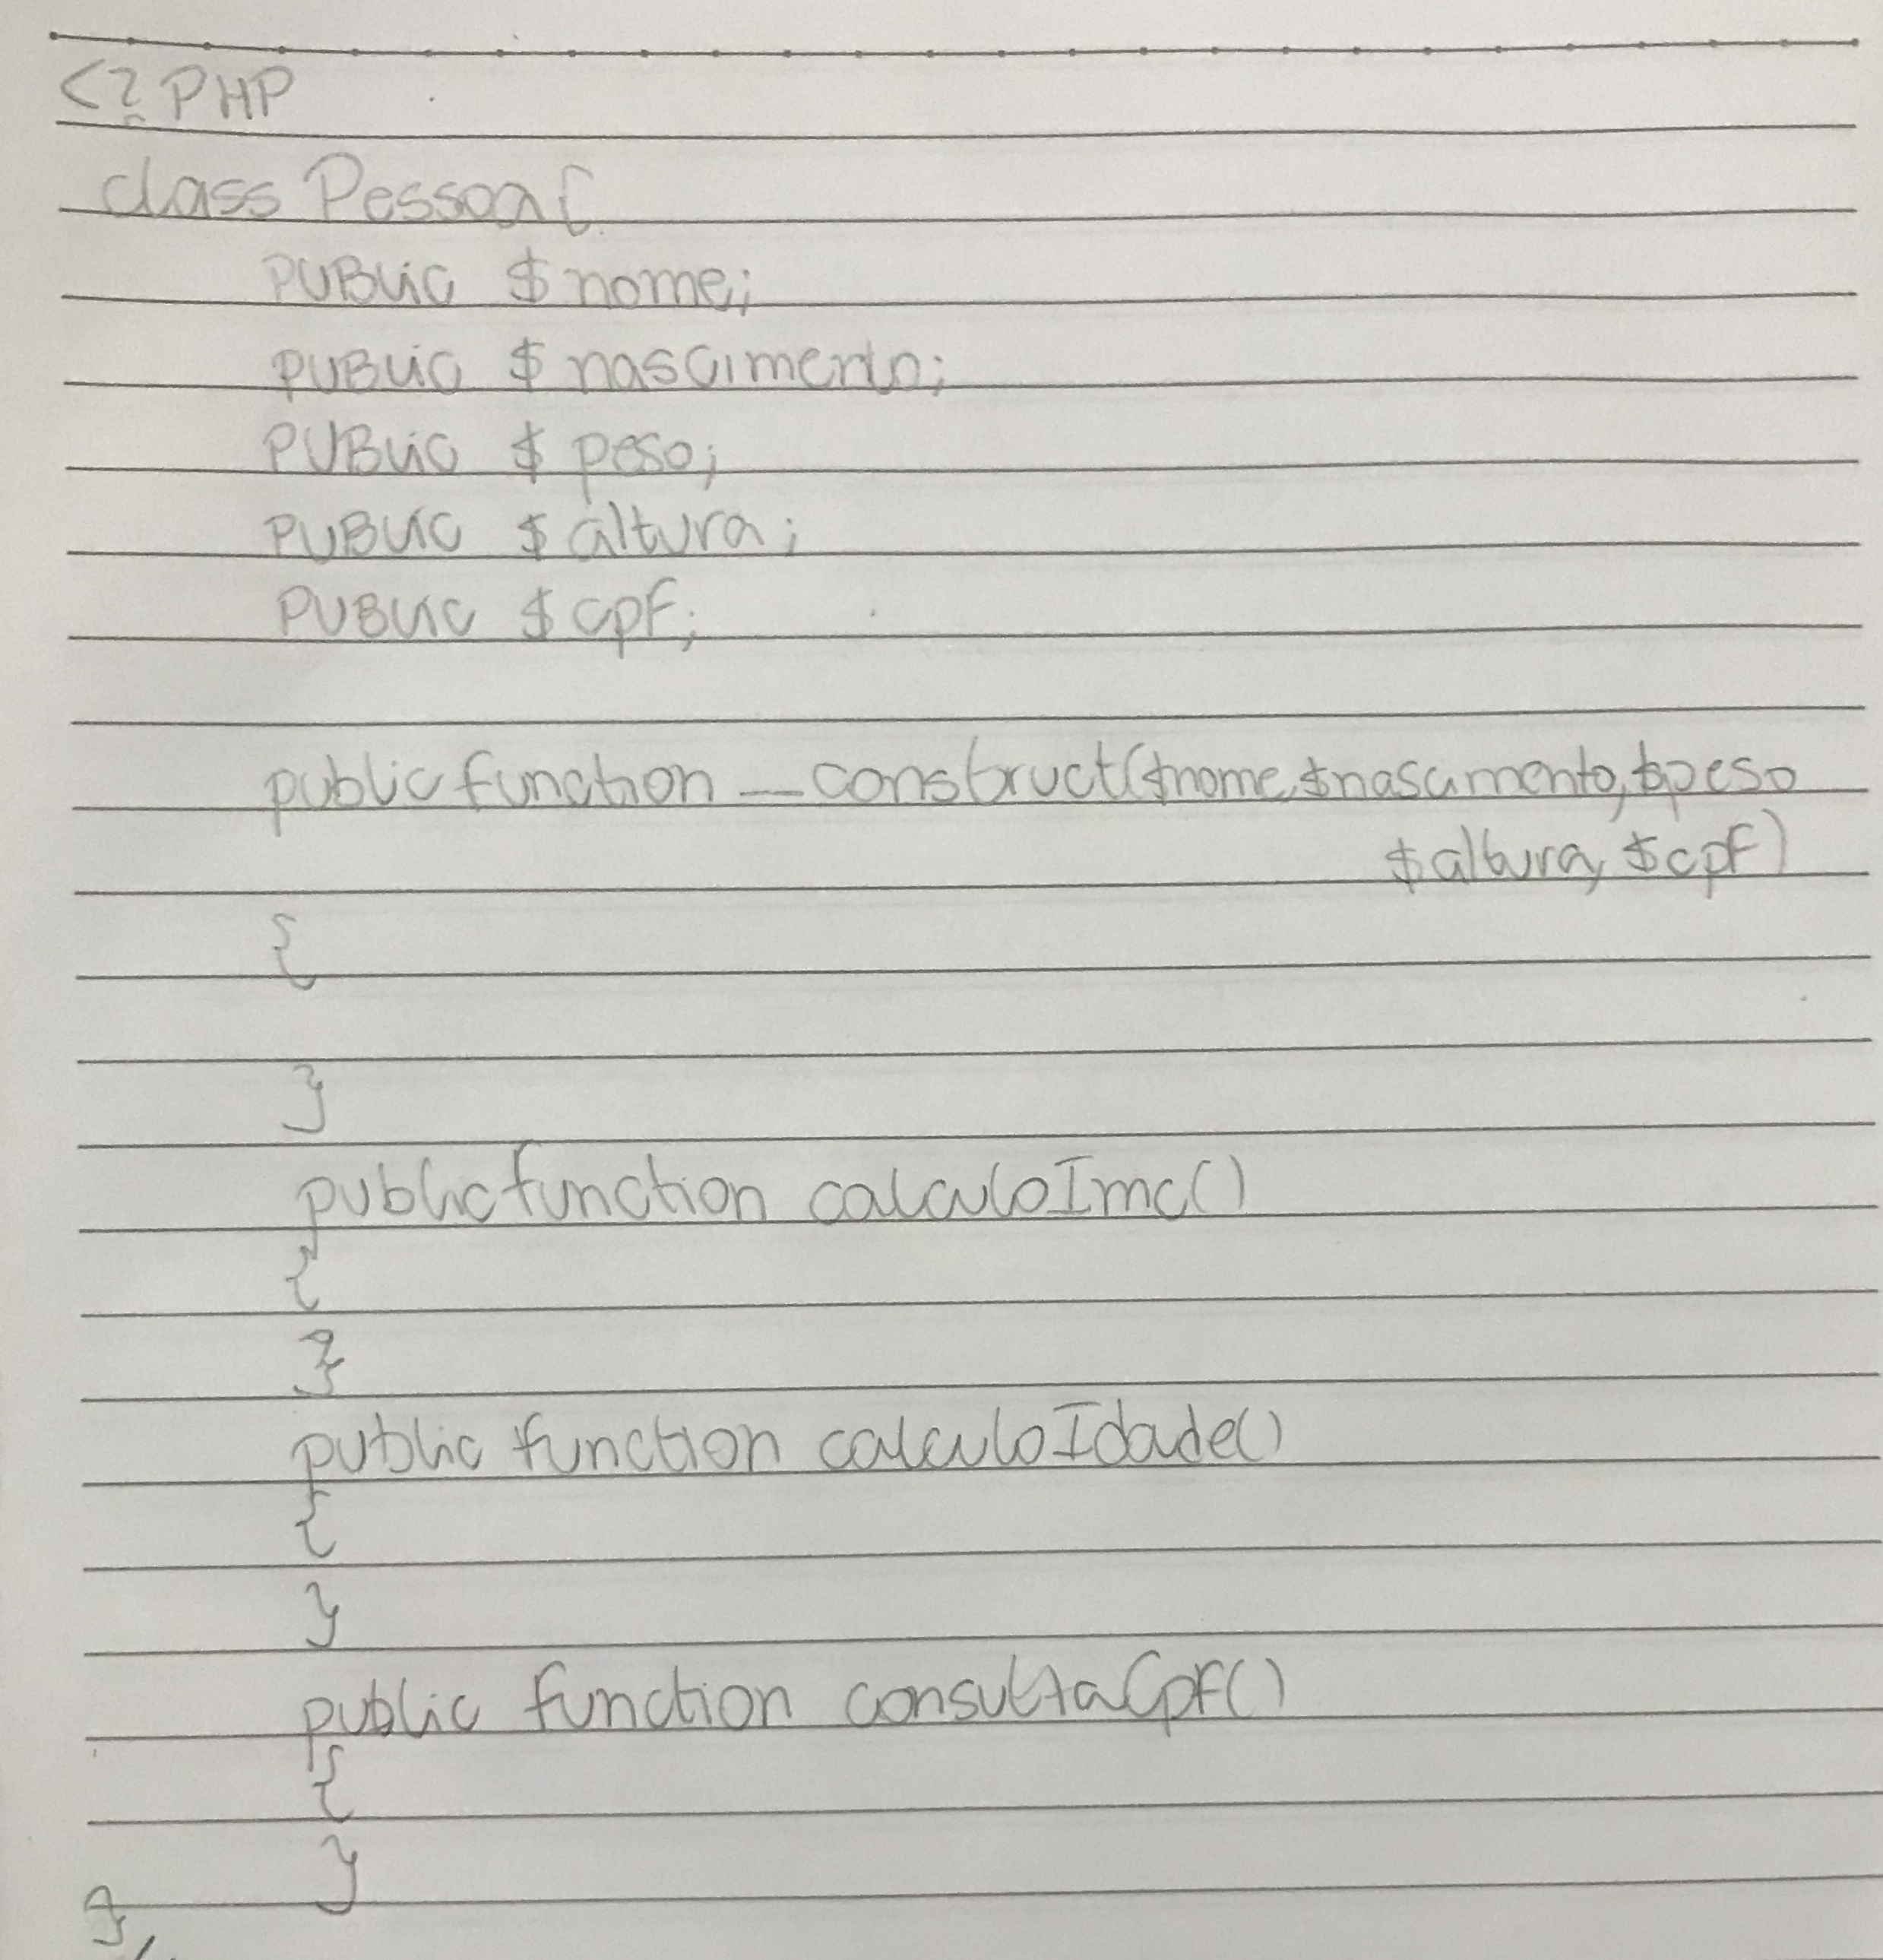 <?PHP
class Pessoa{
PUBLiC $nome;
PUBLiC $nascimento;
PUBLiC $peso;
PUBLIC $altura;
PUBLIC $cpf;
public function __construct($nome,$nascimento,$peso
$altura, $cpf)
{
}
public function calculoImc()
{
}
public function calculoIdade()
{
}
public function consultaCpf()
{
}
}